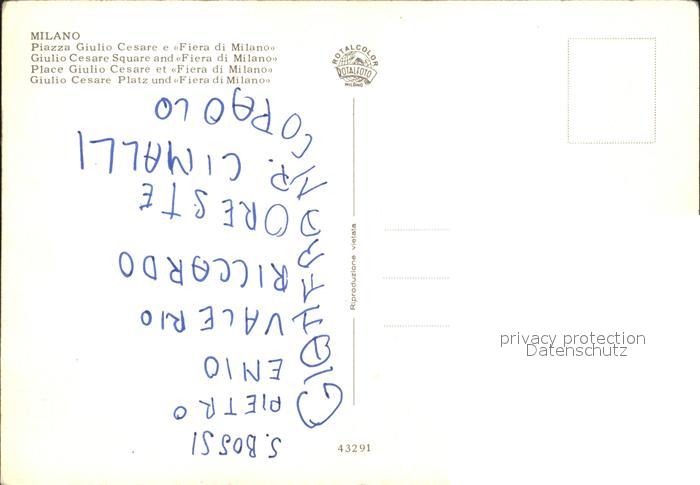 MILANO
Piazza Giulio Cesare e «Fiera di Milano»
Giulio Cesare Square and «Fiera di Milano»
Place Giulio Cesare et «Fiera di Milano»
Giulio Cesare Platz und «Fiera di Milano»
ROTALCOLOR
ROTALFOTO
MILANO
Riproduzione vietata
43291
S. BOSSI
PIETRO
ENIO
VALERIO
RICCARDO
ORESTE
CIMALLI
PAOLO
privacy protection
Datenschutz